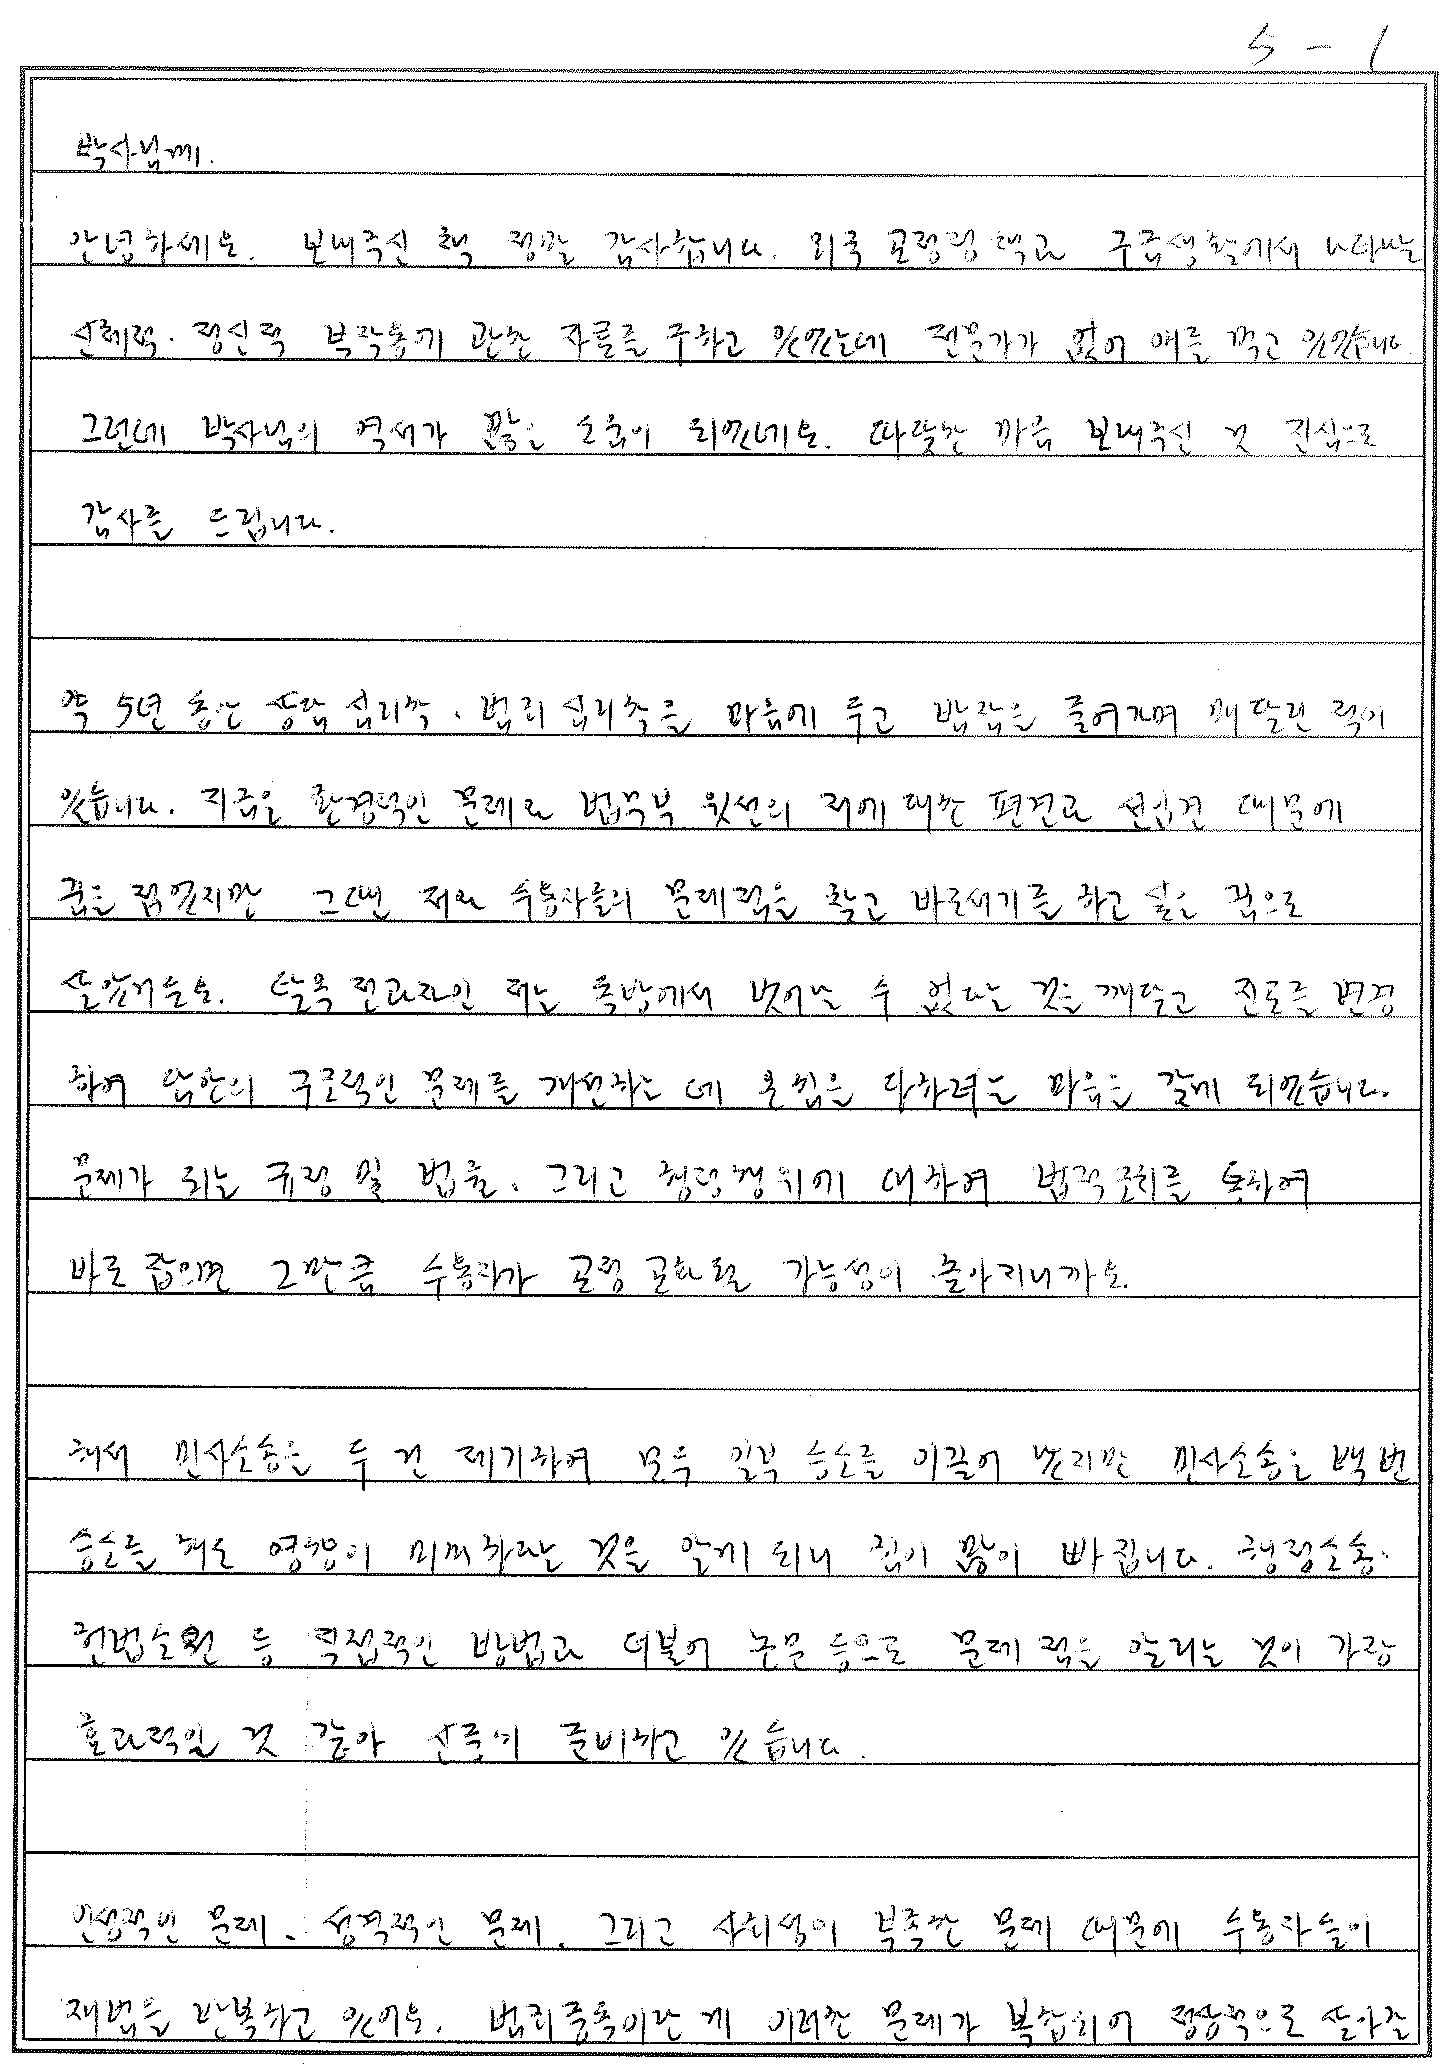 5 - 1
박사님께.
안녕하세요. 보내주신 책 정말 감사합니다. 외국 교정정책과 구금생활에서 나타날
신체적·정신적 부작용에 관한 자료를 구하고 있었는데 전문가가 없어 애를 먹고 있었습니다.
그런데 박사님의 역서가 많은 도움이 되었네요. 따뜻한 마음 보내주신 것 진심으로
감사를 드립니다.
약 5년 동안 상담심리학·범죄심리학을 마음에 두고 밥잠을 줄여가며 매달린 적이
있습니다. 지금은 환경적인 문제와 법무부 윗선의 저에 대한 편견과 선입견 때문에
꿈을 접었지만 그땐 저와 수용자들의 문제점을 찾고 바로세기를 하고 싶은 꿈으로
살았거든요. 탈옥 전과자인 저는 독방에서 벗어날 수 없다는 것을 깨닫고 진로를 변경
하여 담안의 구조적인 문제를 개선하는 데 온힘을 다하려는 마음을 갖게 되었습니다.
문제가 되는 규정 및 법률, 그리고 행정행위에 대하여 법적조치를 통하여
바로 잡으면 그만큼 수용자가 교정교화될 가능성이 높아지니까요.
해서 민사소송을 두 건 제기하여 모두 일부 승소를 이끌어 냈지만 민사소송은 백번
승소를 해도 영향이 미미하다는 것을 알게 되니 힘이 많이 빠집니다. 행정소송·
헌법소원 등 직접적인 방법과 더불어 논문 등으로 문제점을 알리는 것이 가장
효과적일 것 같아 신중히 준비하고 있습니다.
인성적인 문제, 성격적인 문제, 그리고 사회성이 부족한 문제 때문에 수용자들이
재범을 반복하고 있어요. 범죄중독이란 게 이러한 문제가 복합되어 정상적으로 살아갈